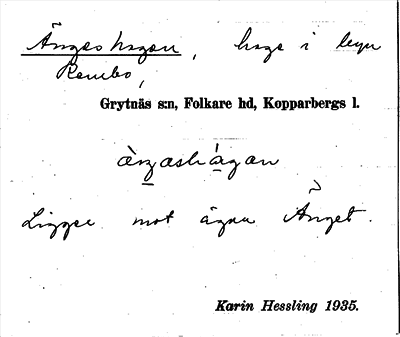 Ängeshagen, hage i byn
Rembo,
Grytnäs s:n, Folkare hd, Kopparbergs l.
àngashágan
Ligger mot ägan Änget.
Karin Hessling 1935.